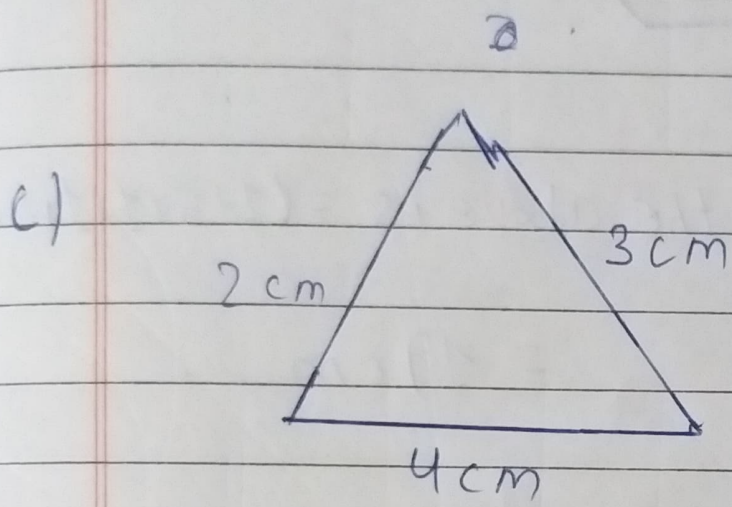 c)
2 cm
3 cm
4 cm